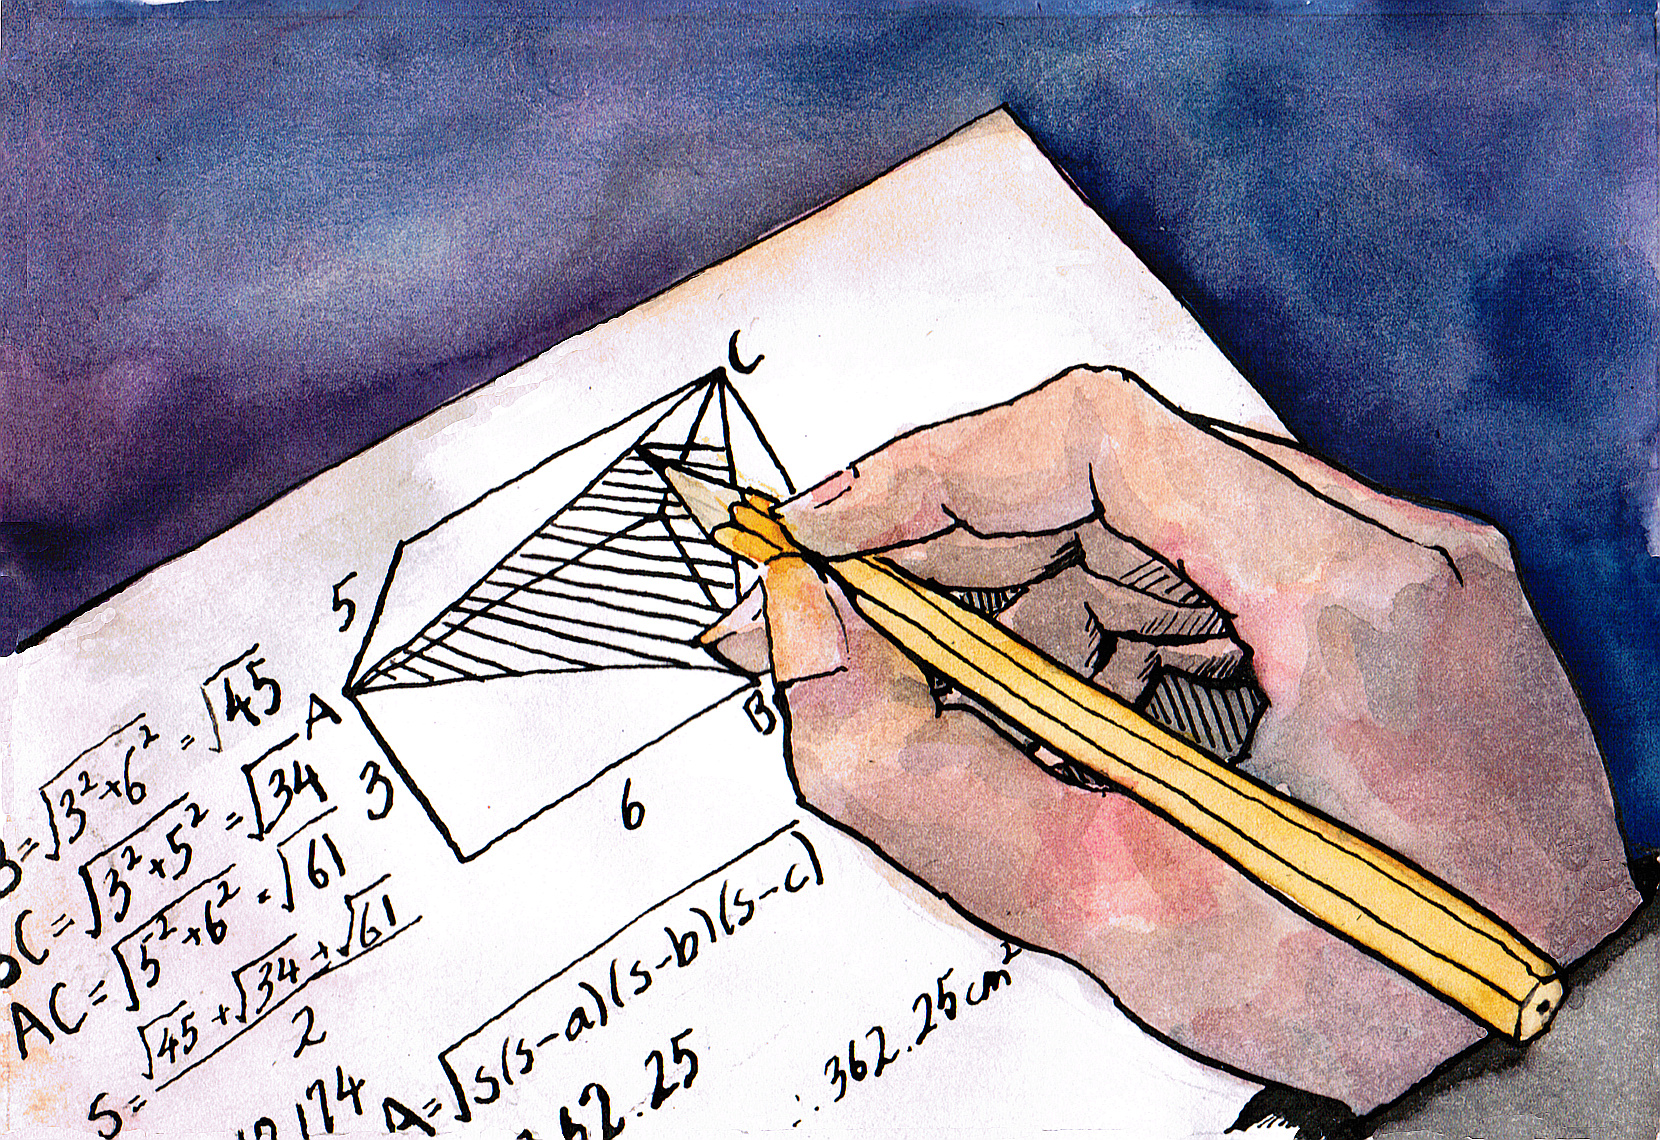 C
5
A
B
3
6
B=√3²+6² = √45
BC=√3²+5² = √34
AC=√5²+6² = √61
S=√45+√34+√61
2
A=√s(s-a)(s-b)(s-c)
362.25
∴ 362.25cm²